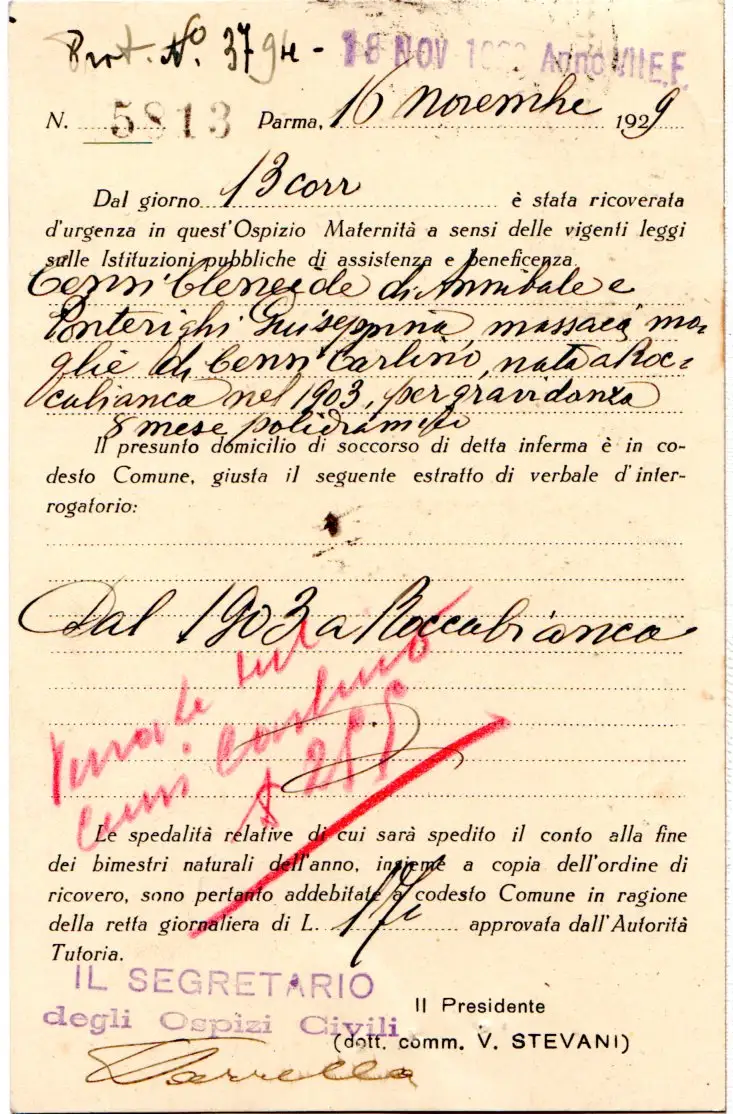 Prot. N.º 3794 - 18 NOV Anno VIII E.F.
N. 5813 Parma, 16 novembre 1929
Dal giorno 13 corr è stata ricoverata
d'urgenza in quest'Ospizio Maternità a sensi delle vigenti leggi
sulle Istituzioni pubbliche di assistenza e beneficenza
Cenni Cleneide di Annibale e
Ponterighi Guiseppina, massaia, mo-
glie di Cenni Carlino, nata a Roc-
cabianca nel 1903, per gravidanza
8 mese
Il presunto domicilio di soccorso di detta inferma è in co-
desto Comune, giusta il seguente estratto di verbale d'inter-
rogatorio:
Dal 1903 a Roccabianca
Cenni Carlino
Le spedalità relative di cui sarà spedito il conto alla fine
dei bimestri naturali dell'anno, insieme a copia dell'ordine di
ricovero, sono pertanto addebitate a codesto Comune in ragione
della retta giornaliera di L. 17 approvata dall'Autorità
Tutoria.
IL SEGRETARIO
degli Ospizi Civili
Il Presidente
(dott. comm. V. STEVANI)